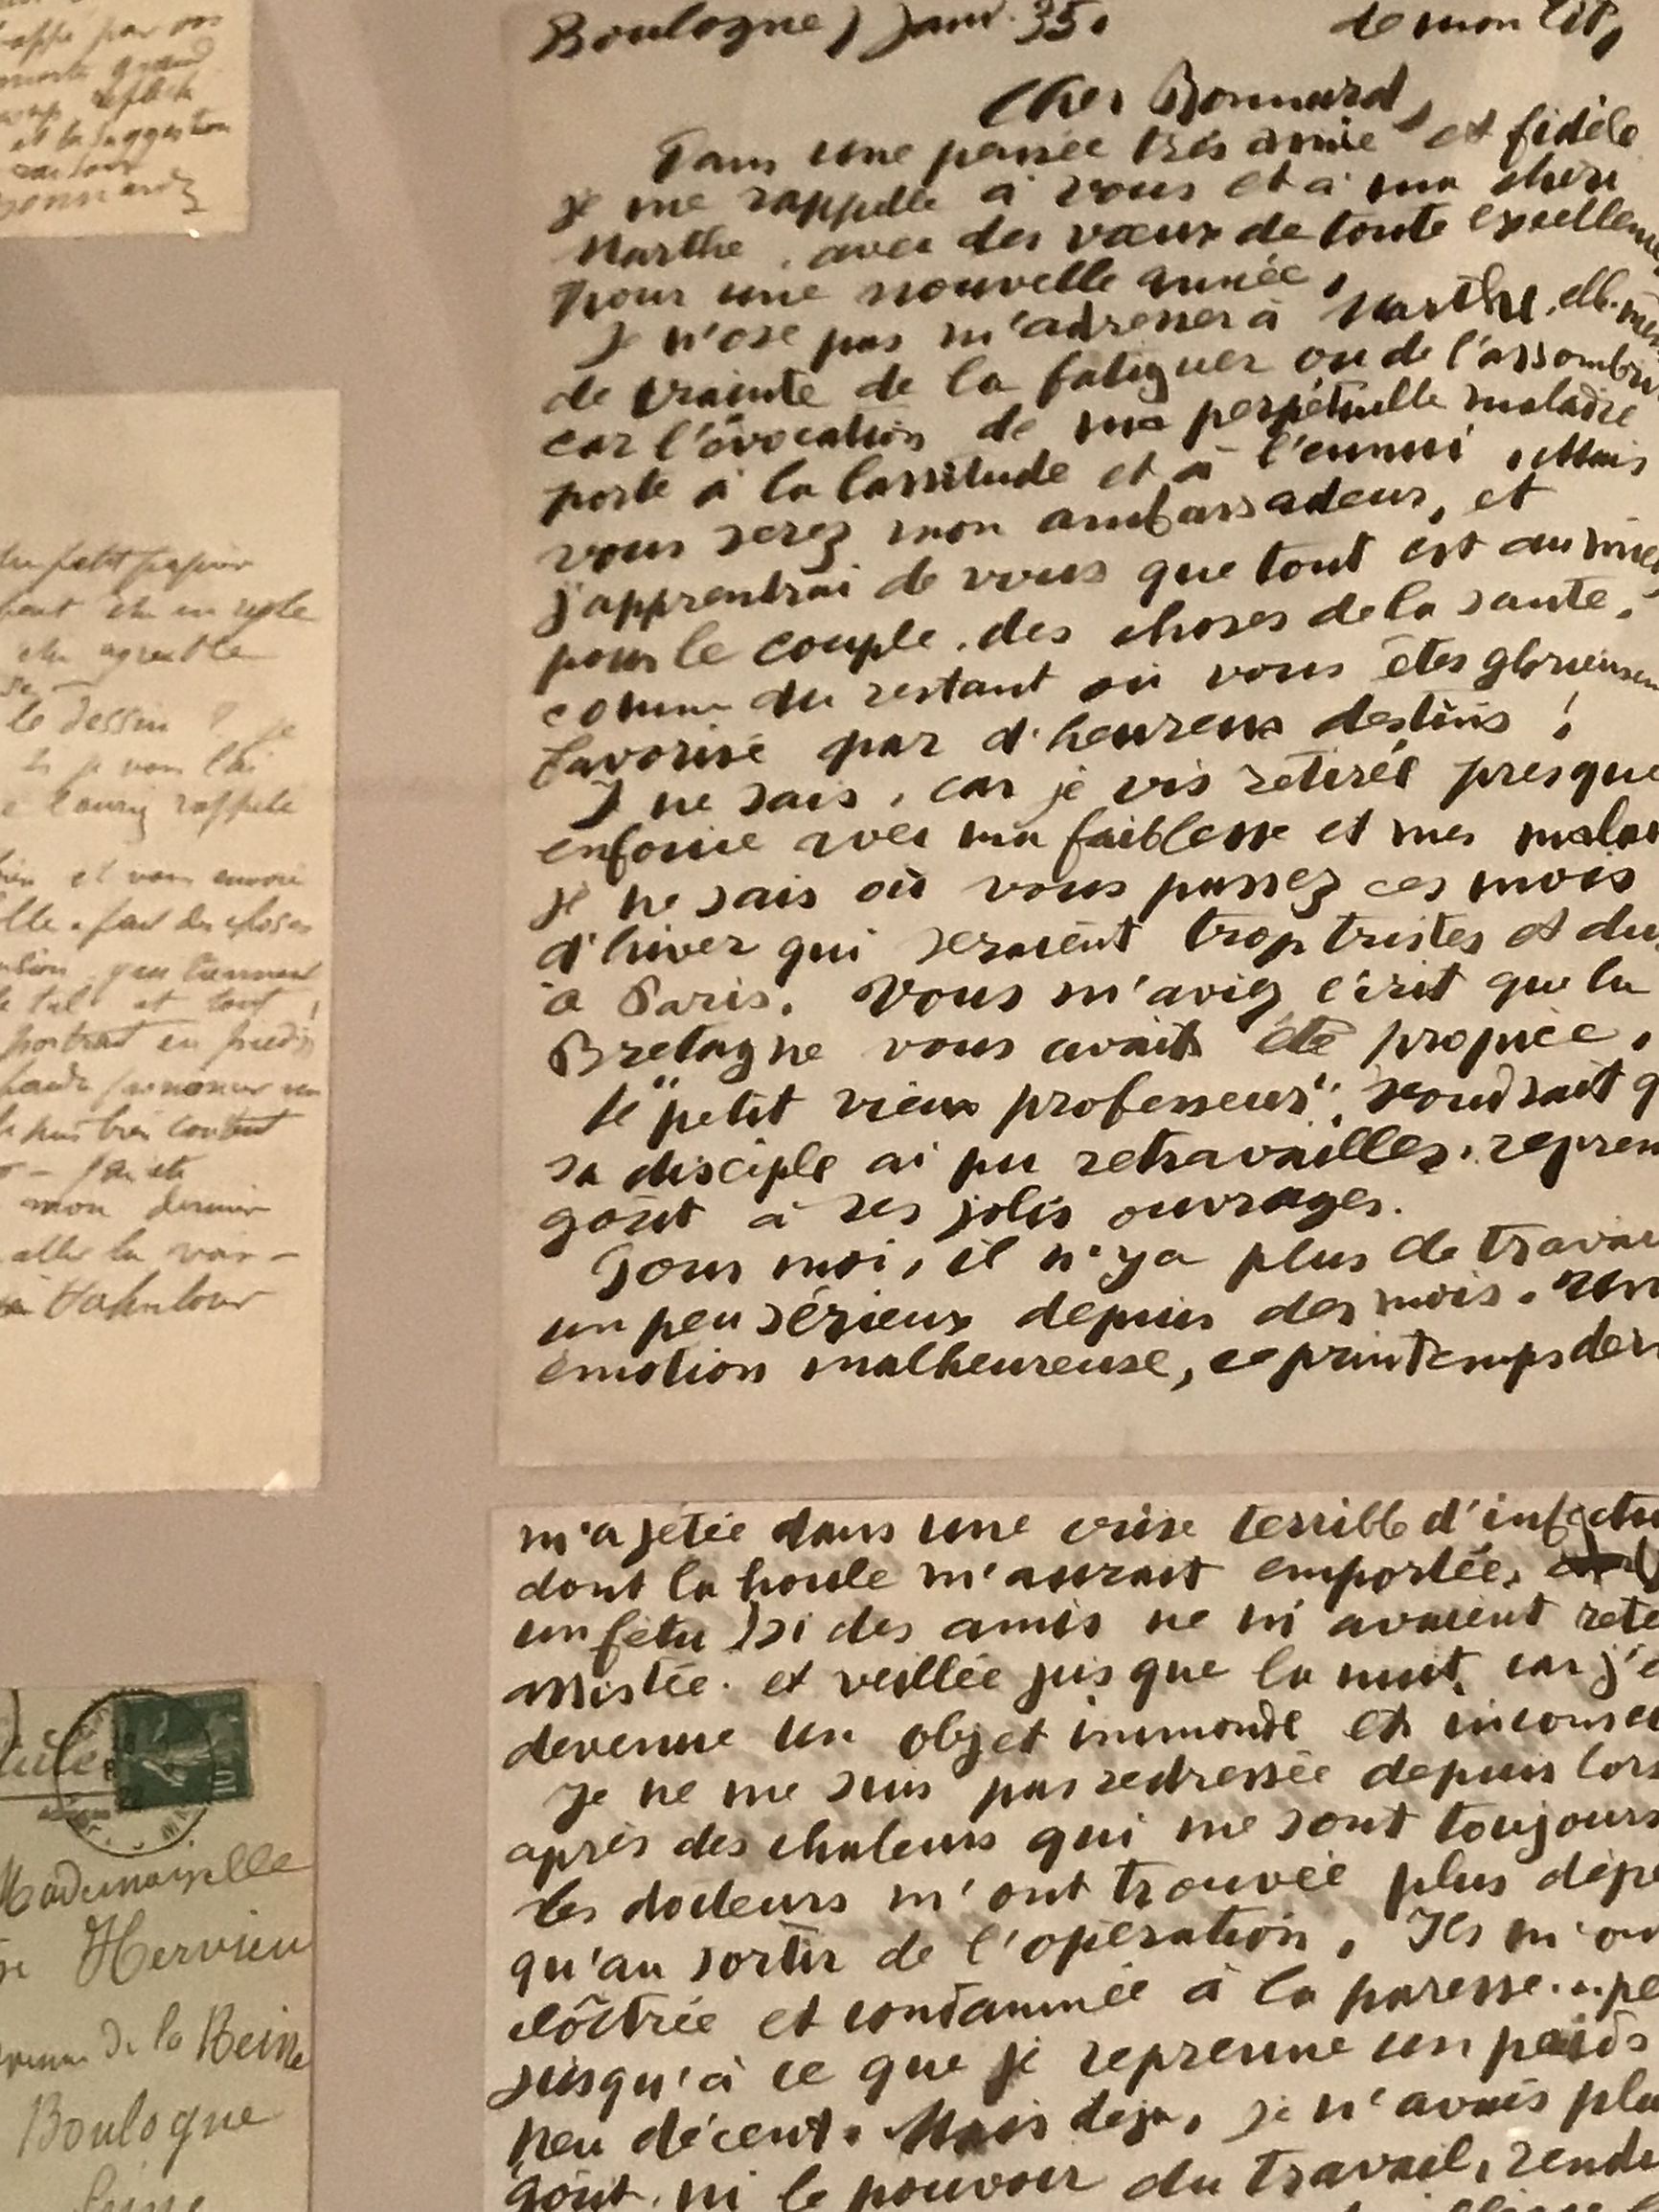 par
grand
et la suggestion
Bonnard
petit papier
agreable
le dessin ? je
je vous l'ai
rappelé
et vous envoie
fait des choses
et tout
portrait en pieds
très content
mon dernier
aller la voir -
Mademoiselle
Hervieu
de la Reine
Boulogne
Seine
10
Boulogne, janv. 35. de mon lit,
Cher Bonnard,
Dans une pensée très amie et fidèle
je me rappelle à vous et à ma chère
Marthe, avec des vœux de toute excellence
pour une nouvelle année.
Je n'ose pas m'adresser à Marthe, elle-mê
de crainte de la fatiguer ou de l'assombrir
car l'évocation de ma perpétuelle maladie
porte à la lassitude et à l'ennui. Mais
vous serez mon ambassadeur, et
j'apprendrai de vous que tout est au mie
pour le couple, des choses de la santé,
comme du restant où vous êtes glorieusem
favorisé par d'heureux destins !
Je ne sais, car je vis retirée presque
enfouie avec ma faiblesse et mes malai
je ne sais où vous passez ces mois
d'hiver qui seraient trop tristes et du
à Paris. Vous m'aviez écrit que la
Bretagne vous avait été propice.
le "petit vieux professeur", voudrait q
sa disciple ai pu retravailler, repren
goût à ses jolis ouvrages.
Pour moi, il n'y a plus de travai
un peu sérieux depuis des mois. Une
émotion malheureuse, ce printemps der
m'a jetée dans une crise terrible d'infectio
dont la houle m'aurait emportée,
un fétu) si des amis ne m'avaient rete
assistée et veillée jusque la nuit, car j'é
devenue un objet immonde et inconsci
Je ne me suis pas redressée depuis lors
après des chaleurs qui me sont toujours
les docteurs m'ont trouvée plus dépé
qu'au sortir de l'opération. Ils m'on
cloîtrée et condamnée à la paresse
jusqu'à ce que je reprenne un poids
peu décent. Mais déja, je n'avais plu
goût, ni le pouvoir du travail, rendu